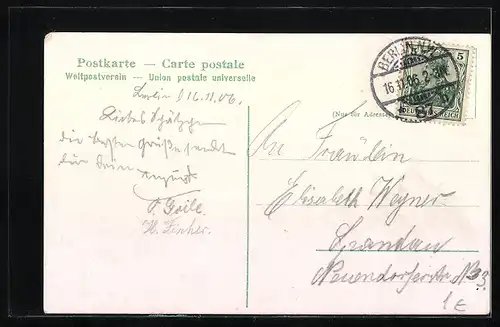 Postkarte — Carte postale
Weltpostverein — Union postale universelle
Berlin 16.11.06.
Liebes Schätzchen
die besten Grüße sendet
dir dein
August
H. Fischer.
BERLIN
16.11.06. 2-3N.
5
(Nur für Adresse)
An Fräulein
Elisabeth Wegner
Spandau
Neuendorferstr. 
1 €